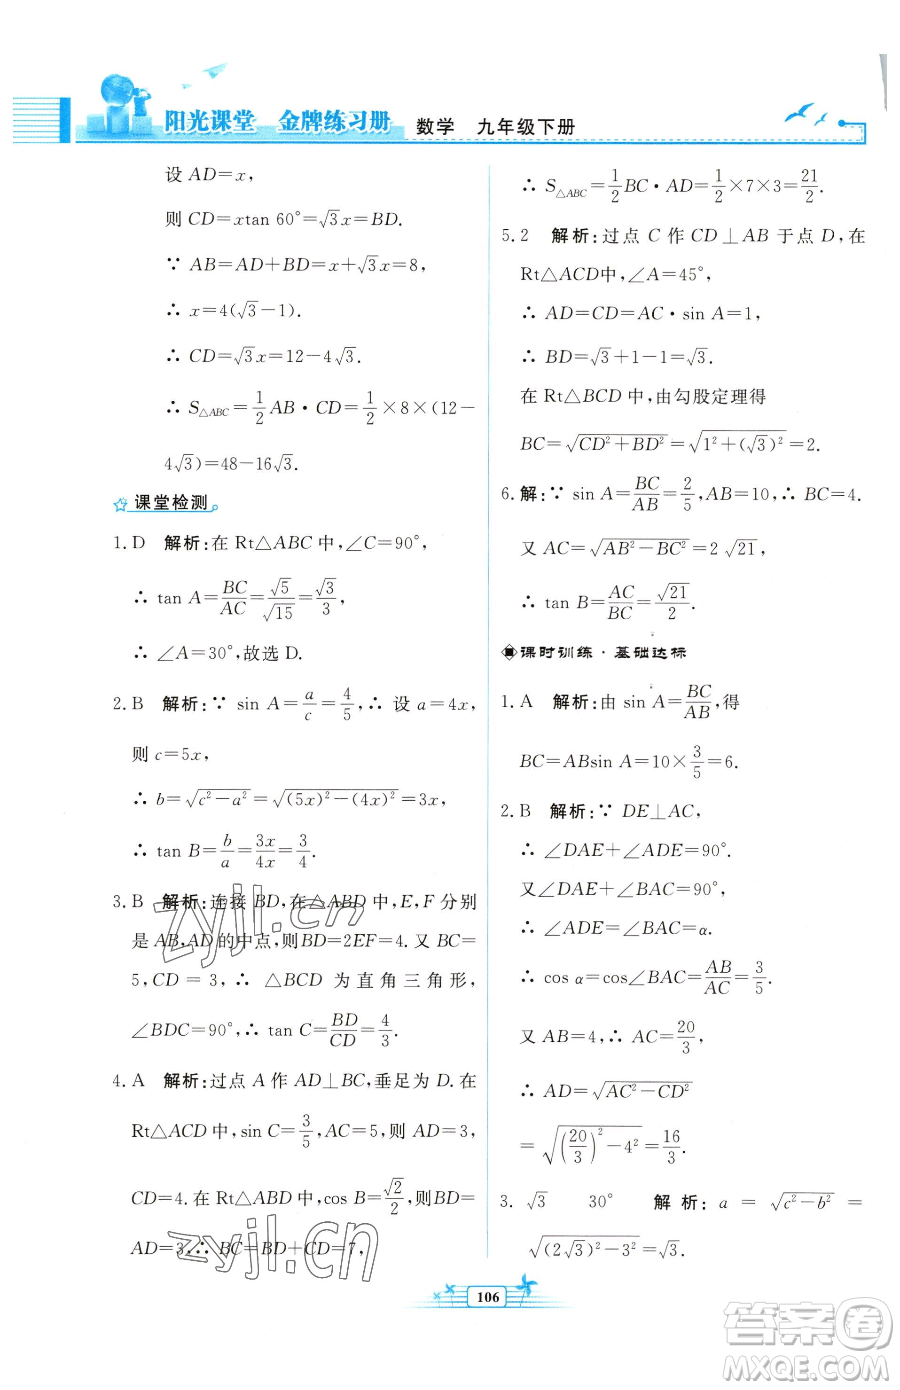 阳光课堂 金牌练习册 数学 九年级下册
设 AD=x,
则 CD=xtan 60°=√3x=BD.
∵ AB=AD+BD=x+√3x=8,
∴ x=4(√3-1).
∴ CD=√3x=12-4√3.
∴ S△ABC=1/2 AB·CD=1/2×8×(12-
4√3)=48-16√3.
课堂检测
1. D 解析:在 Rt△ABC 中,∠C=90°,
∴ tan A=BC/AC=√5/√15=√3/3,
∴ ∠A=30°,故选 D.
2. B 解析:∵ sin A=a/c=4/5,∴ 设 a=4x,
则 c=5x,
∴ b=√(c²-a²)=√((5x)²-(4x)²)=3x,
∴ tan B=b/a=3x/4x=3/4.
3. B 解析:连接 BD,在△ABD 中,E,F 分别
是 AB,AD 的中点,则 BD=2EF=4. 又 BC=
5,CD=3,∴ △BCD 为直角三角形,
∠BDC=90°,∴ tan C=BD/CD=4/3.
4. A 解析:过点 A 作 AD⊥BC,垂足为 D. 在
Rt△ACD 中,sin C=3/5,AC=5,则 AD=3,
CD=4. 在 Rt△ABD 中,cos B=√2/2,则 BD=
AD=3,∴ BC=BD+CD=7,
∴ S△ABC=1/2 BC·AD=1/2×7×3=21/2.
5. 2 解析:过点 C 作 CD⊥AB 于点 D,在
Rt△ACD中,∠A=45°,
∴ AD=CD=AC·sin A=1,
∴ BD=√3+1-1=√3,
在 Rt△BCD 中,由勾股定理得
BC=√(CD²+BD²)=√(1²+(√3)²)=2.
6. 解:∵ sin A=BC/AB=2/5,AB=10,∴ BC=4.
又 AC=√(AB²-BC²)=2√21,
∴ tan B=AC/BC=√21/2.
课时训练·基础达标
1. A 解析:由 sin A=BC/AB,得
BC=ABsin A=10×3/5=6.
2. B 解析:∵ DE⊥AC,
∴ ∠DAE+∠ADE=90°.
又∠DAE+∠BAC=90°,
∴ ∠ADE=∠BAC=α.
∴ cos α=cos∠BAC=AB/AC=3/5.
又 AB=4,∴ AC=20/3,
∴ AD=√(AC²-CD²)
=√((20/3)²-4²)=16/3.
3. √3 30° 解析:a=√(c²-b²)=
√((2√3)²-3²)=√3.
106
zyjl.cn
zyjl.cn
答案圈
MXQE.COM